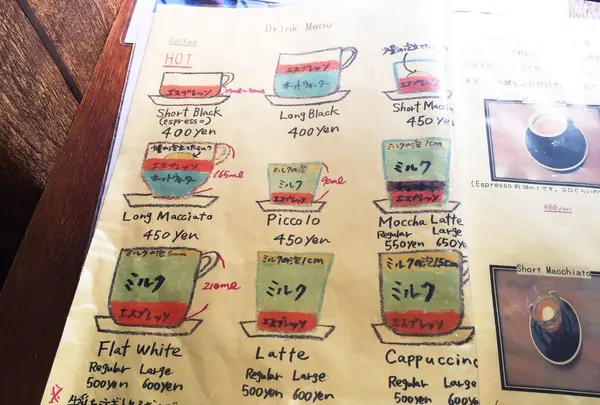 Drink Menu
Coffee
HOT
エスプレッソ
25ml~30ml
Short Black
(espresso)
400yen
エスプレッソ
ホットウォーター
Long Black
400yen
エスプレッソ
Short Maccia
450
エスプレッソ
ホットウォーター
165ml
Long Macciato
450yen
ミルクの泡
ミルク
エスプレッソ
90ml
Piccolo
450yen
ミルクの泡1cm
ミルク
エスプレッソ
Moccha Latte
Regular Large
550yen 650ye
ミルクの泡5mm
ミルク
エスプレッソ
210ml
Flat White
Regular Large
500yen 600yen
ミルクの泡1cm
ミルク
エスプレッソ
Latte
Regular Large
500yen 600yen
ミルクの泡1.5cm
ミルク
エスプレッソ
Cappuccino
Regular Large
500yen 600yen
400yen
Short Macchiato